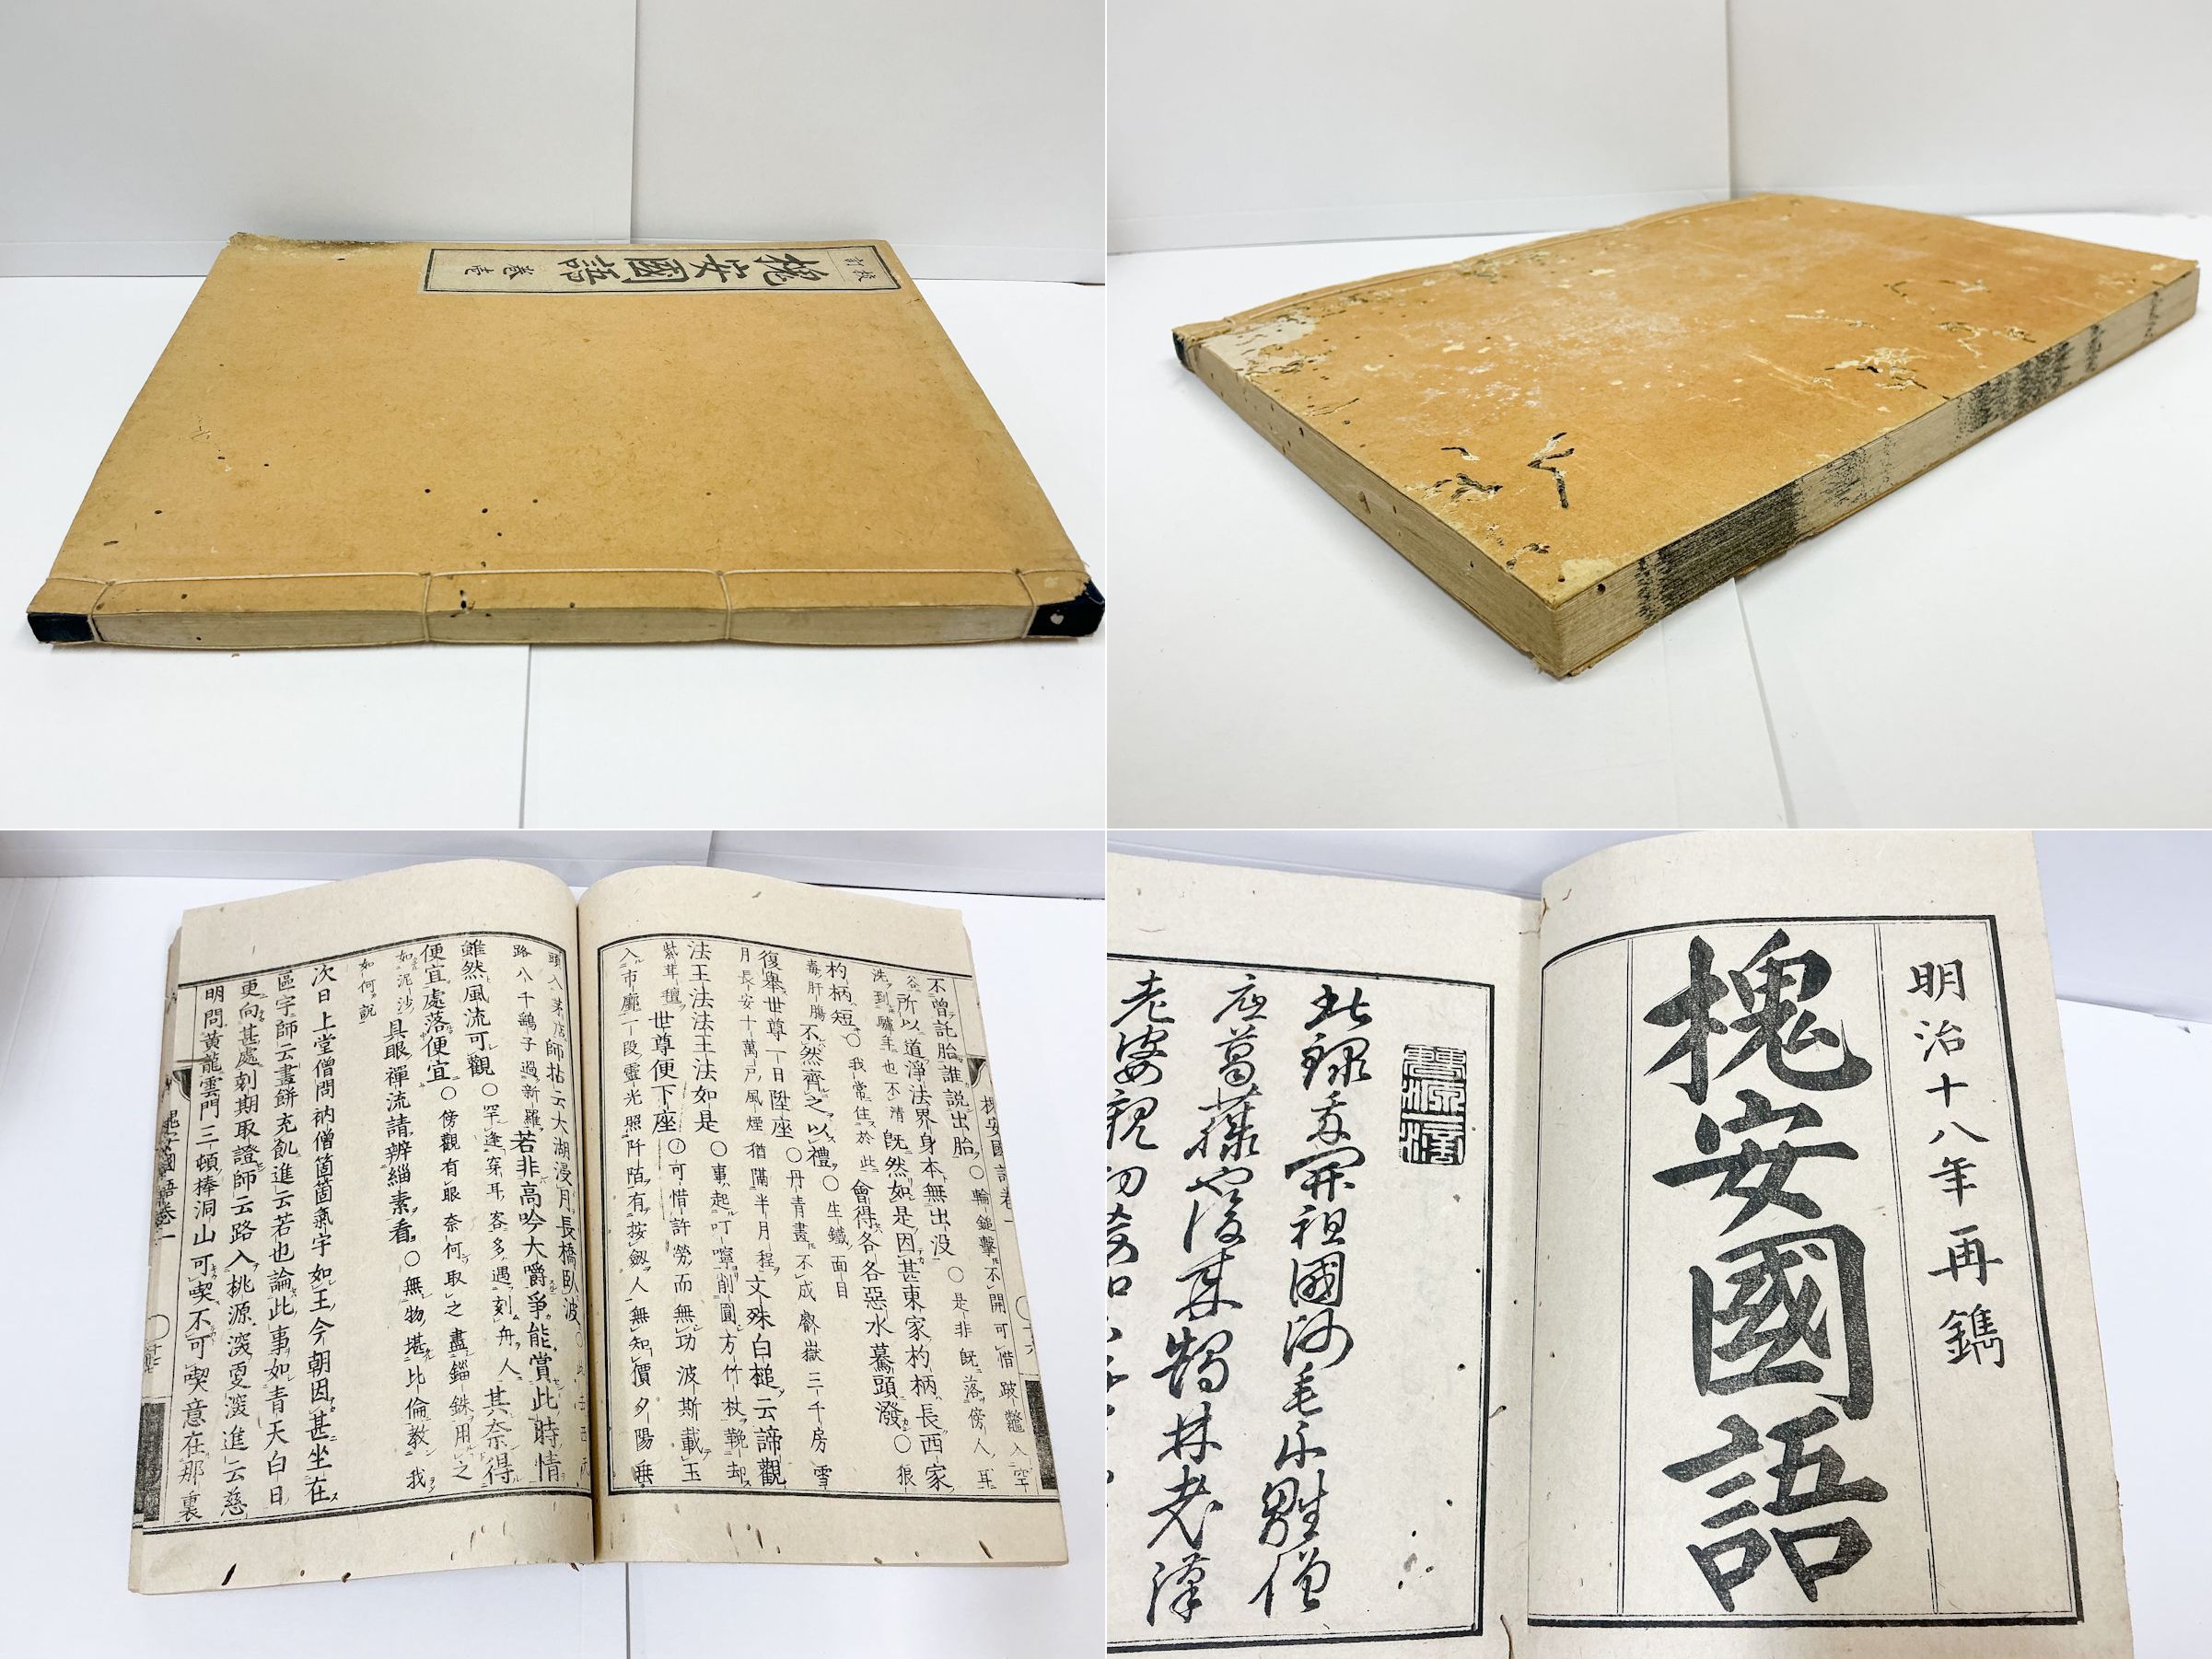 校訂
槐安國語 卷壱
不曾託胎誰說出胎○輪鎚擊不開可惜跛鼈入空
谷所以道淨法界身本無出沒○是非既落傍人耳
洗到驢年也不清既然如是因甚東家杓柄長西家
杓柄短○我常住於此會得各各惡水驀頭潑○狼
毒肝腸不然齊之以禮○生鐵面目
復舉世尊一日陞座○丹青畫不成獻嶽三千房雪
月長安十萬戶風煙猶隔半月程文殊白槌云諦觀
法王法法王法如是○事起叮嚀削圓方竹杖鞔却
紫茸氈世尊便下座○可惜許勞而無功波斯載玉
入市廛一段靈光照阡陌有按劔人無知價夕陽垂
頭入茅店師拈云大湖浸月長橋臥波
路八千鷂子過新羅若非高吟大嚼爭能賞此時情
雖然風流可觀○罕逢穿耳客多遇刻舟人其奈得
便宜處落便宜○傍觀有眼奈何取之盡錙銖用之
如泥沙具眼禪流請辨緇素看○無物堪比倫教我
如何說
次日上堂僧問衲僧箇箇氣宇如王今朝因甚坐在
區宇師云畫餅充飢進云若也論此事如青天白日
更向甚處刻期取證師云路入桃源深更深進云慈
明問黃龍雲門三頓棒洞山可喫不可喫意在那裏
槐安國語卷一
明治十八年再鐫
槐安國語
此錄
開祖國師毛
雛僧
葛藤
鵠林老漢
老婆親切